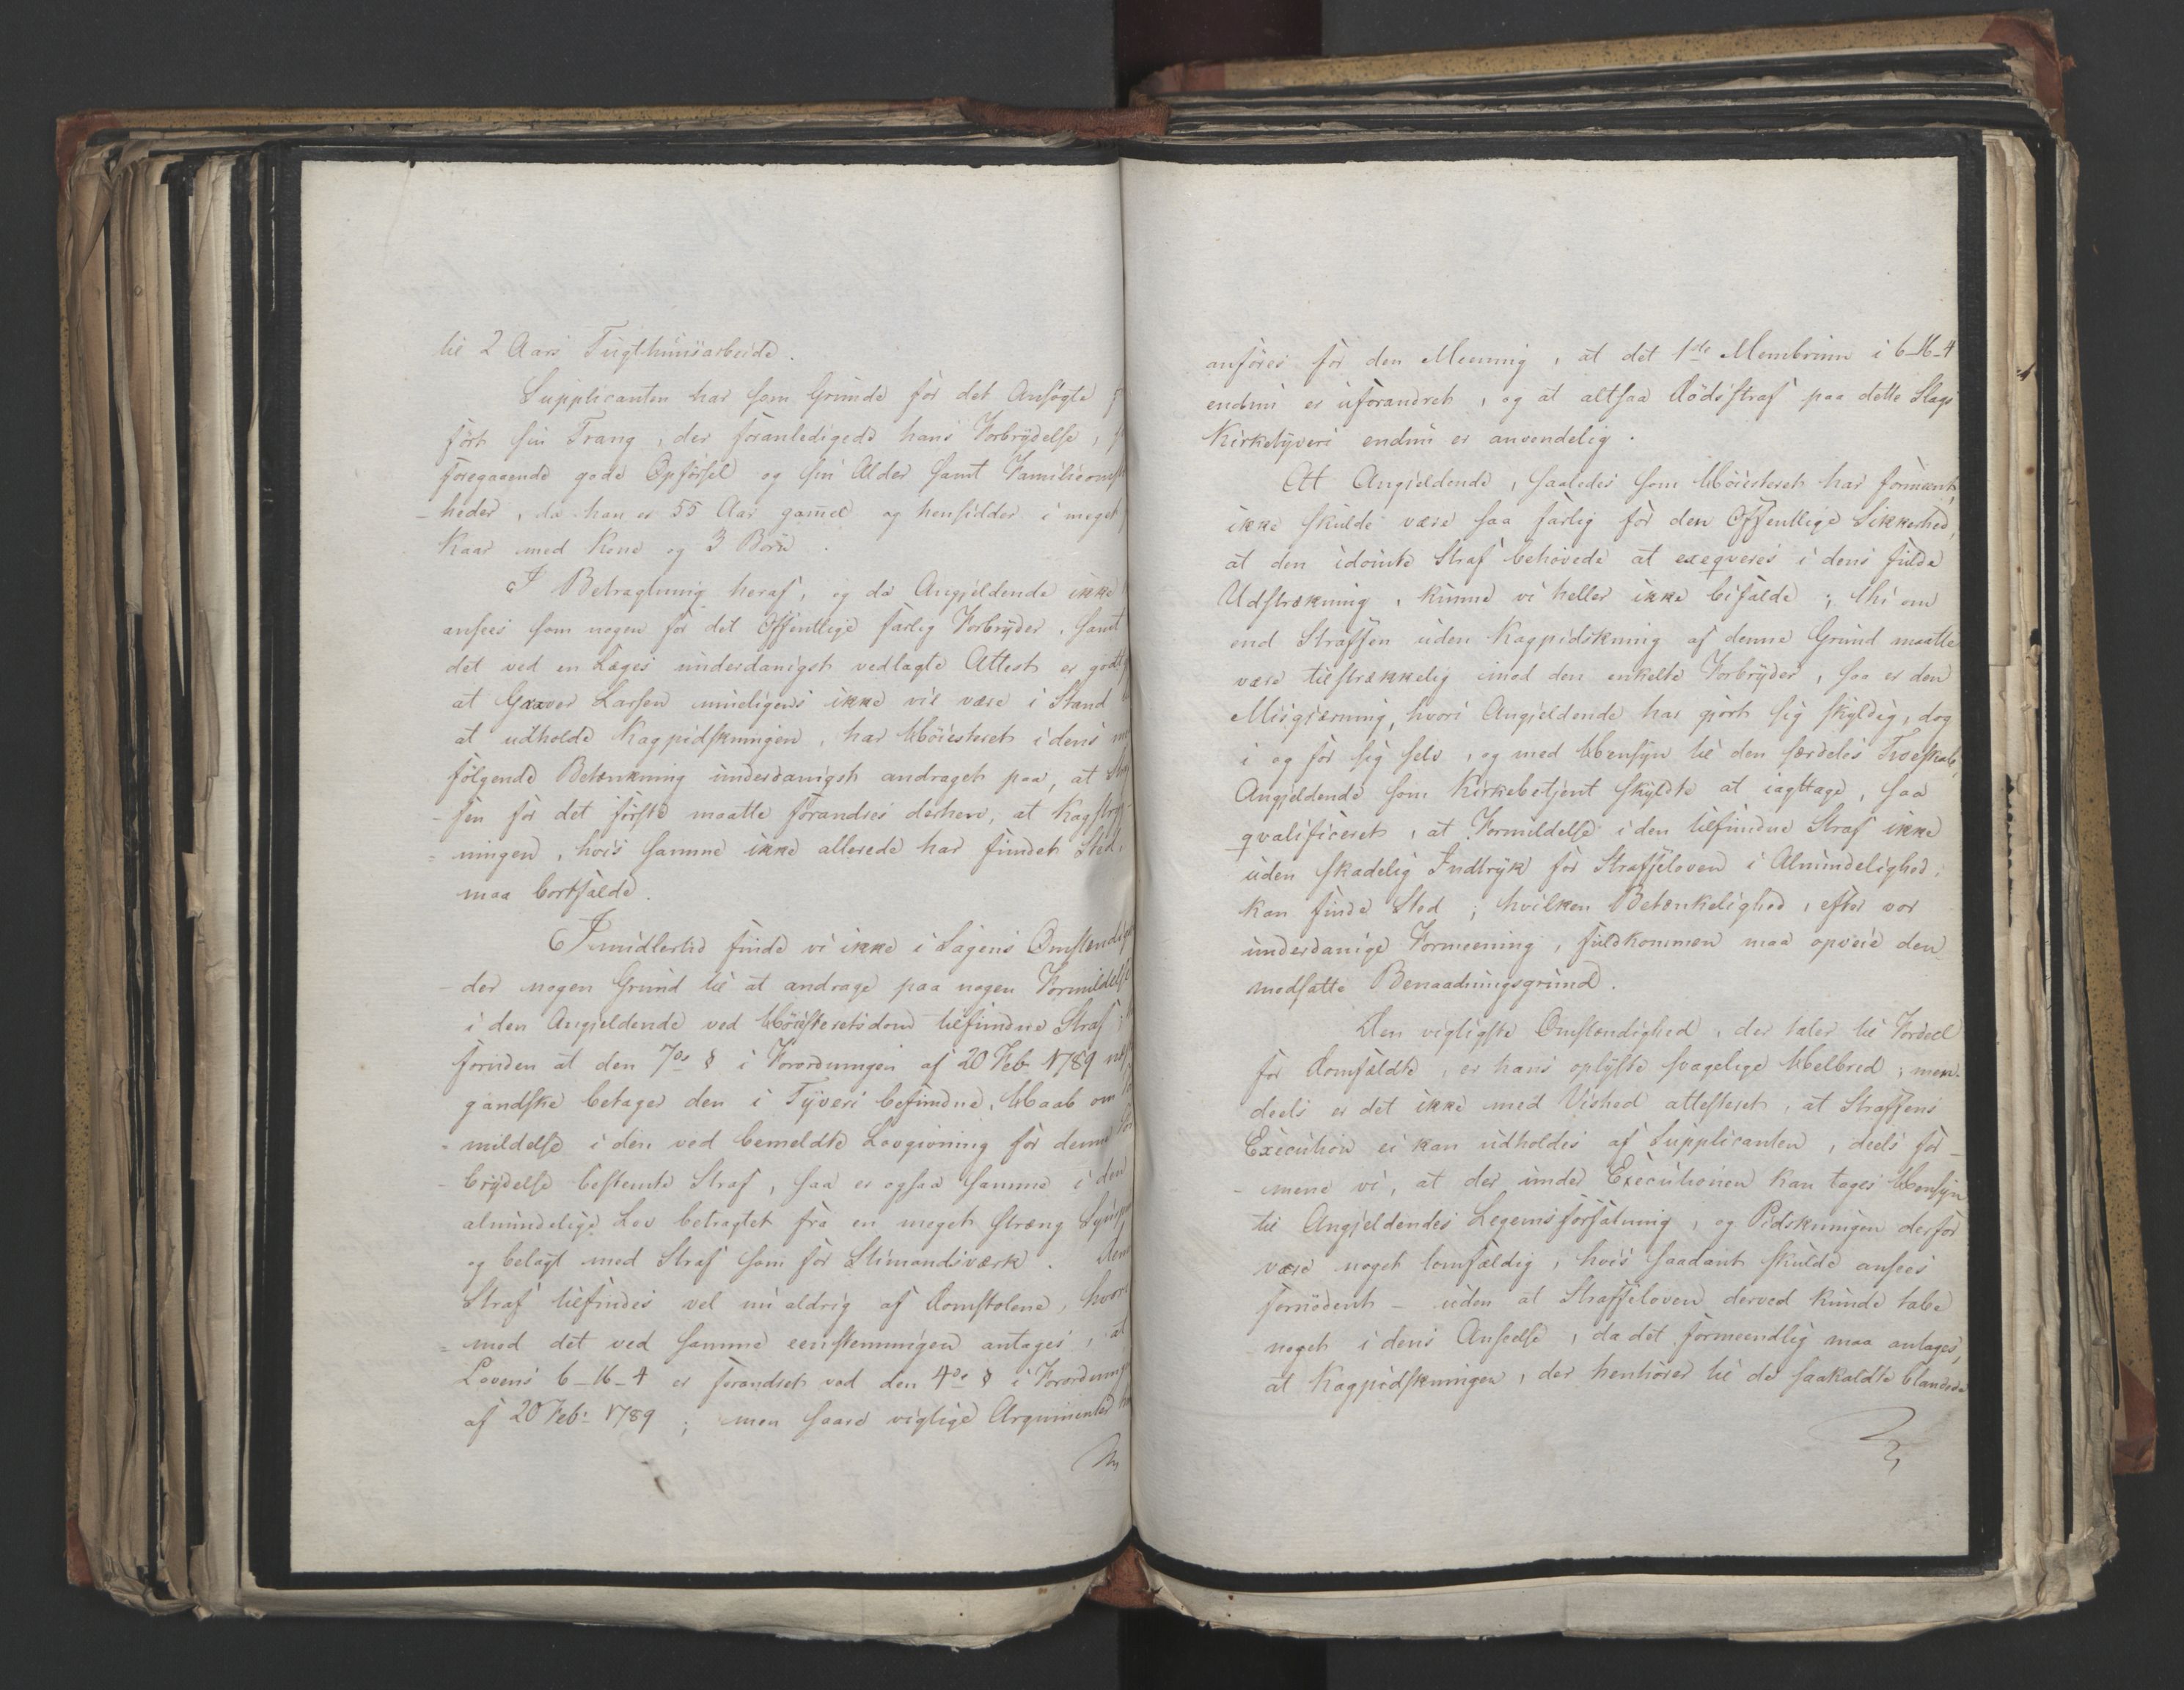 til 2 Aars Tugthuusarbeide.
Supplicanten har som Grunde for det Ansøgte
ført sin Trang, der foranledigede hans Forbrydelse,
foregaaende gode Opførsel og sin Alder samt Familieomst
-heder, da han er 55 Aar gam̄el og hensidder i meget
Kaar med Kone og 3 Børn.
I Betragtning heraf, og da Angjeldende ikke
ansees som nogen for det Offentlige farlig Forbryder, samt
det ved en Læges underdanigst vedlagte Attest er godtg
at Graver Larsen rimeligens ikke vil være i Stand
at udholde Kagpidskningen, har Høiesteret i dens
følgende Betænkning underdanigst andraget paa, at
-fen for det første maatte forandres derhen, at Kagstry-
=ningen, hvis samme ikke allerede har fundet Sted,
maa bortfalde.
Imidlertid finde vi ikke i Sagens Omstændig
-der nogen Grund til at andrage paa nogen Formildelse
i den Angjeldende ved Høiesteretsdom tilfundne Straf;
foruden at den 7de § i Forordningen af 20 Feb: 1789
gandske betager den i Tyveri befundne, Haab om
-mildelse i den ved bemeldte Lovgivning for denne For
-brydelse bestemte Straf, saa er ogsaa samme i den
almindelige Lov betragtet fra en meget stræng Synsp
og belagt med Straf som for Stimandsværk. Den
Straf tilfindes vel nu aldrig af Domstolene, hvori
=mod det ved samme eenstemmigen antages, at
Lovens 6-16-4 er forandret ved den 4de § i Forordning
af 20 Feb: 1789; men saare vigtige Argumenter
anføres for den Meening, at det 1ste Membrum i 6-16-4
endnu er uforandret, og at altsaa Dødsstraf paa dette Slags
Kirketyveri endnu er anvendelig.
At Angjeldende, saaledes som Høiesteret har formeent,
ikke skulde være saa farlig for den Offentlige Sikkerhed,
at den idømte Straf behøvede at exeqveres i dens fulde
Udstrækning, kunne vi heller ikke bifalde; thi om
end Straffen uden Kagpidskning af denne Grund maatte
være tilstrækkelig imod den enkelte Forbryder, saa er den
Misgjærning, hvori Angjeldende har gjort sig skyldig, dog
i og for sig selv, og med Hensyn til den særdeles Troeskab,
Angjeldende som Kirkebetjent skyldte at iagttage, saa
qvalificeret, at Formildelse i den tilfundne Straf ikke
uden skadelig Indtryk for Straffeloven i Almindelighed,
kan finde Sted; hvilken Betænkelighed, efter vor
underdanige Formeening, fuldkommen maa opveie den
modsatte Benaadningsgrund.
Den vigtigste Omstændighed, der taler til Fordeel
for Domfældte, er hans oplyste svagelige Helbred; men
deels er det ikke med Vished attesteret, at Straffens
Execution ei kan udholdes af Supplicanten, deels for-
-mene vi, at der under Executionen kan tages Hensyn
til Angjeldendes Legemsforfatning, og Pidskningen derfor
være noget lemfældig, hvis saadant skulde ansees
fornødent - uden at Straffeloven derved kunde tabe
noget i dens Anseelse, da det formeendlig maa antages,
at Kagpidskningen, der henhører til de saakaldte blandede